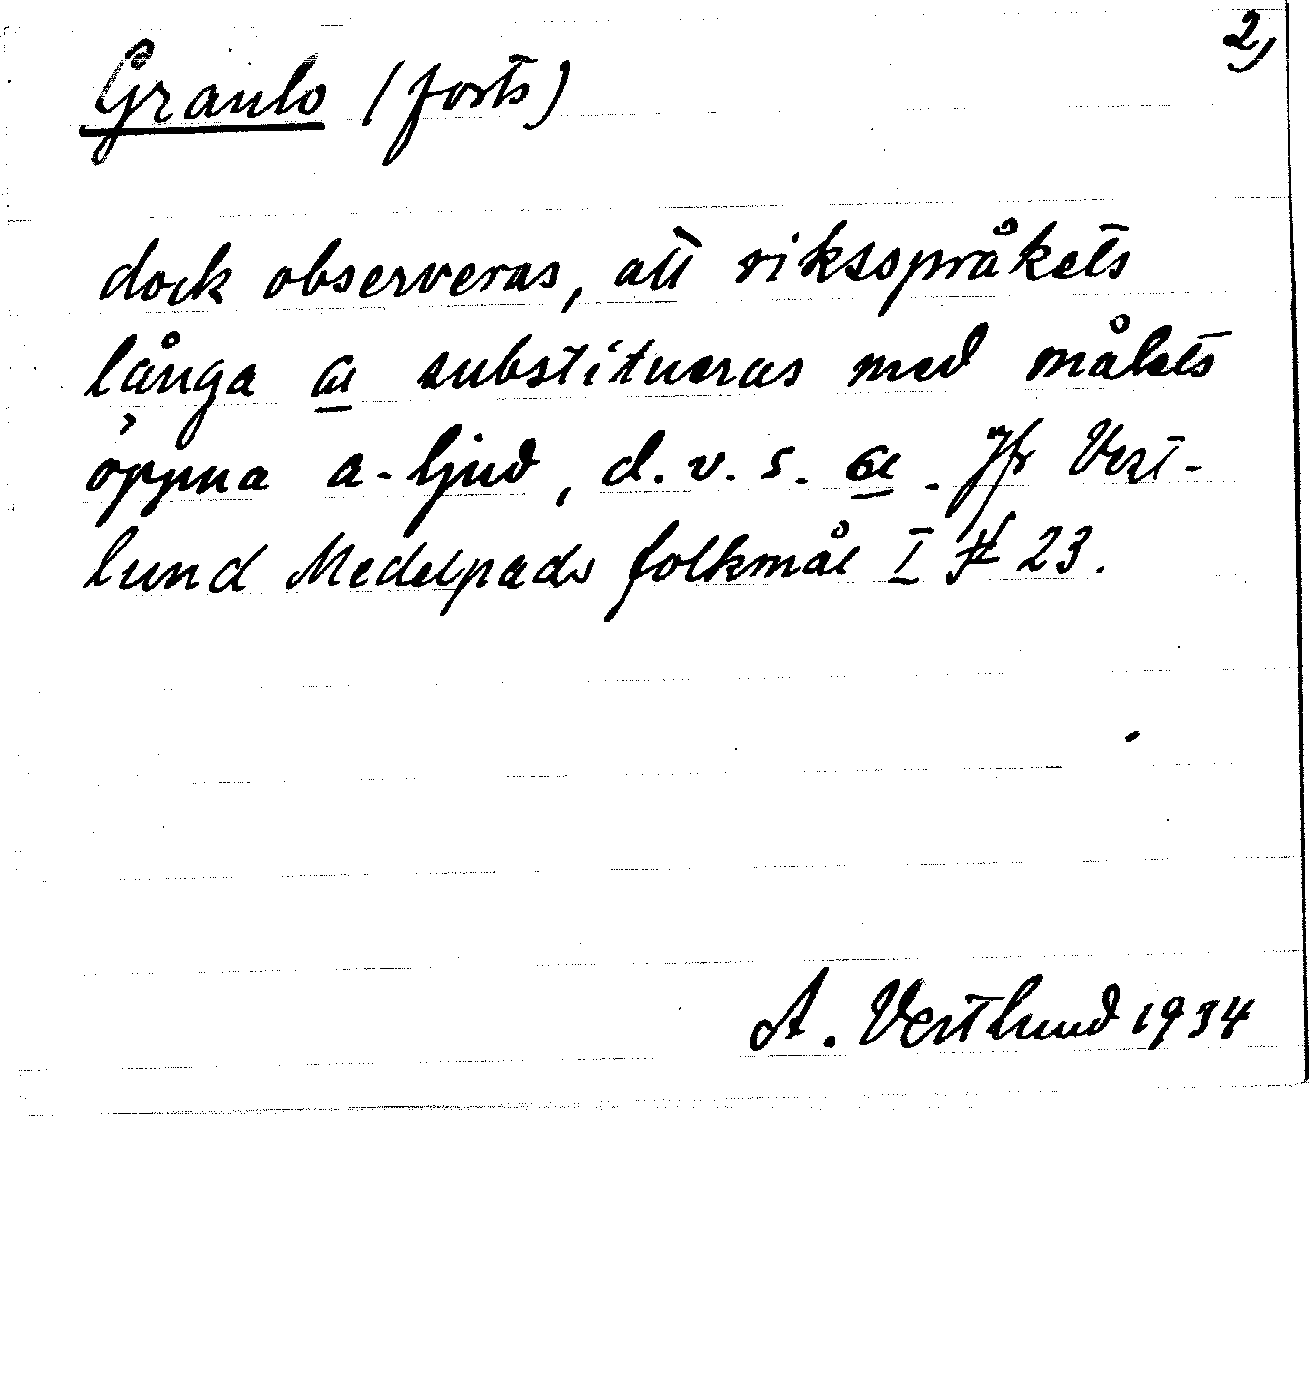 2)
Granlo (forts)
dock observeras, att riksspråkets
långa a substitueras med målets
öppna a-ljud, d.v.s. a. Jfr Vest-
lund Medelpads folkmål I # 23.
A. Vestlund 1934